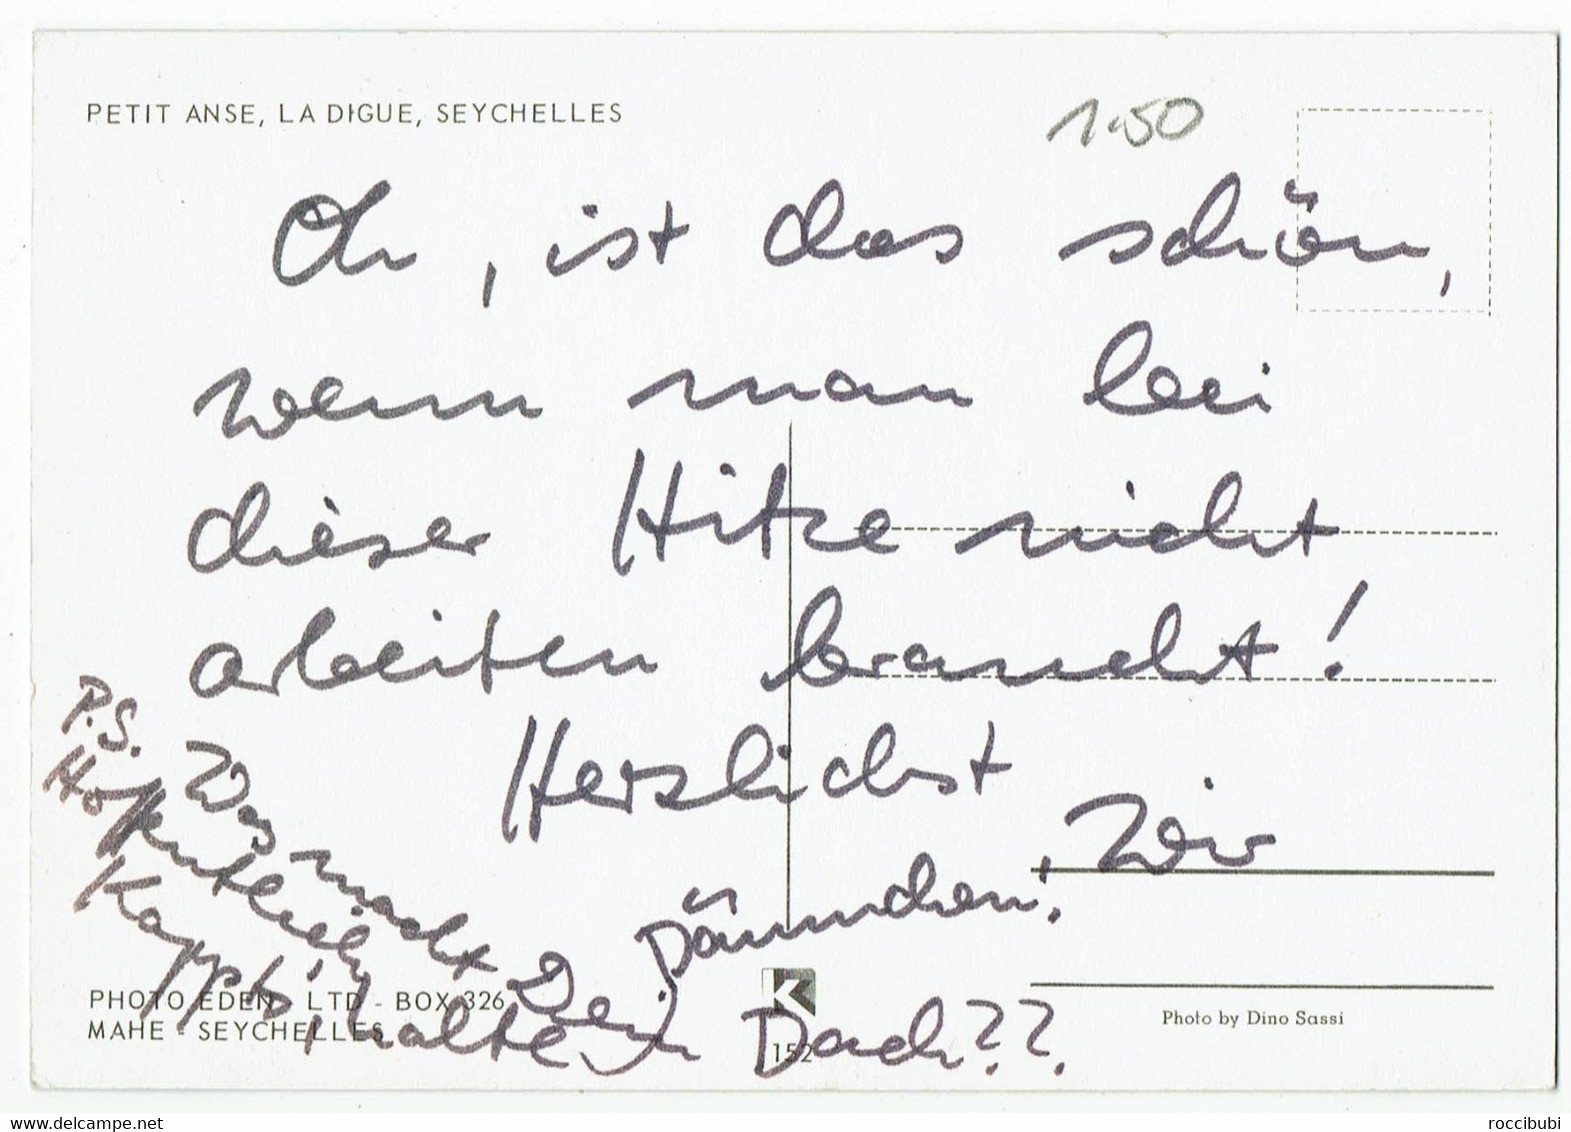 PETIT ANSE, LA DIGUE, SEYCHELLES
1.50
Oh, ist das schön,
wenn man bei
dieser Hitze nicht
arbeiten braucht!
Herzlichst
Wir
P.S. Was macht Dein Dach??
Hoffentlich
halten Däumchen!
PHOTO EDEN LTD - BOX 326
MAHE - SEYCHELLES
K
152
Photo by Dino Sassi
www.delcampe.net
roccibubi